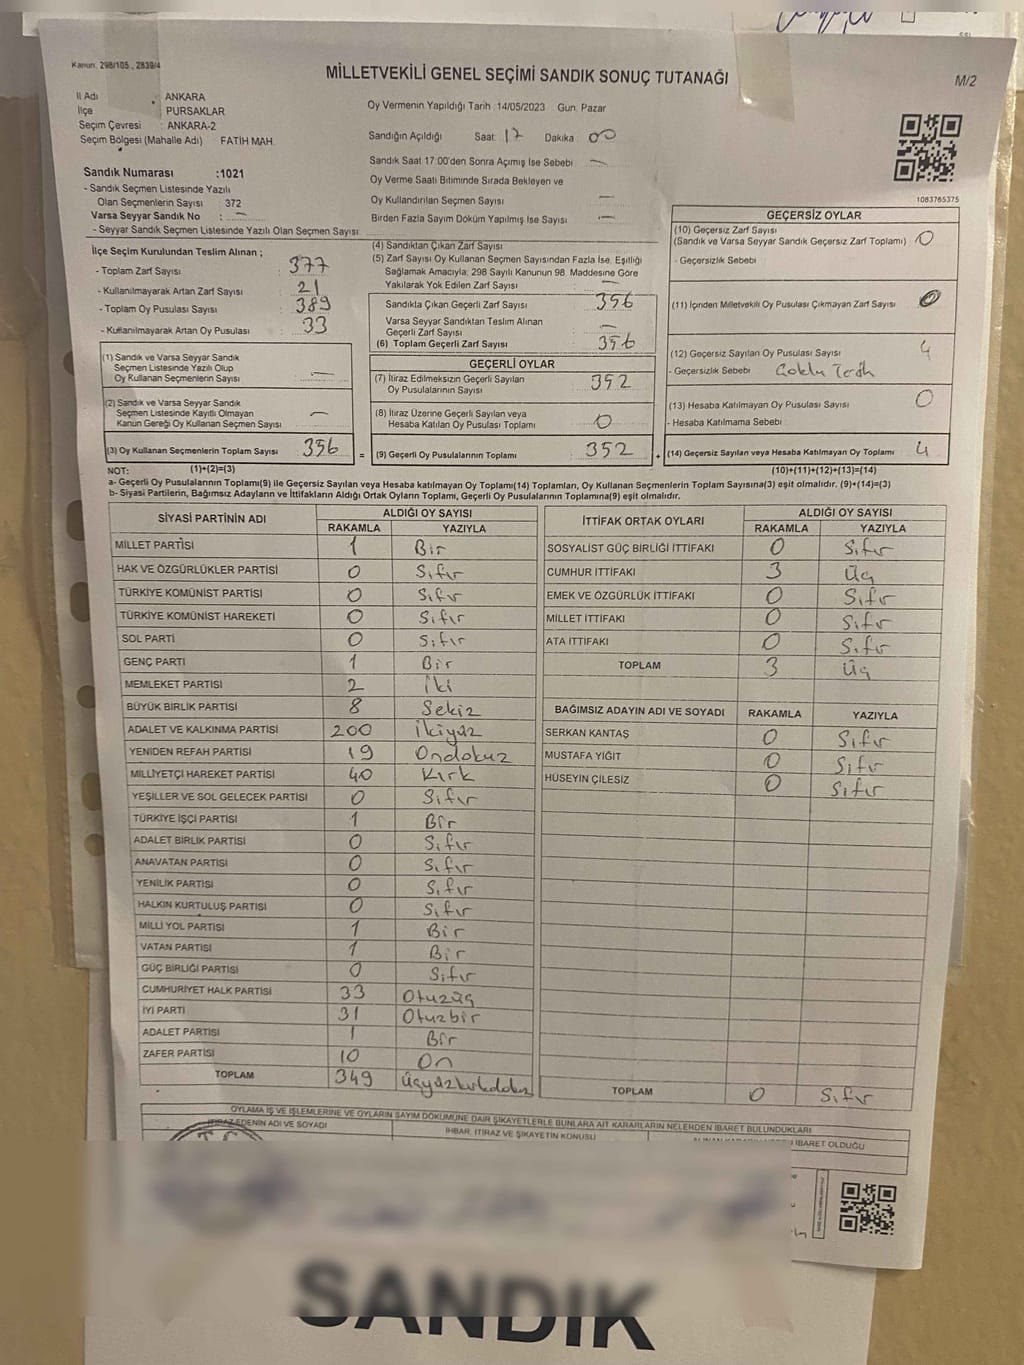 Kanun: 298/105, 2839/4
MİLLETVEKİLİ GENEL SEÇİMİ SANDIK SONUÇ TUTANAĞI
M/2
İl Adı : ANKARA
İlçe : PURSAKLAR
Seçim Çevresi : ANKARA-2
Seçim Bölgesi (Mahalle Adı) FATİH MAH.
Oy Vermenin Yapıldığı Tarih :14/05/2023 Gün: Pazar
Sandığın Açıldığı Saat: 17 Dakika 00
Sandık Saat 17:00'den Sonra Açımış İse Sebebi —
Oy Verme Saati Bitiminde Sırada Bekleyen ve
Oy Kullandırılan Seçmen Sayısı —
Birden Fazla Sayım Döküm Yapılmış İse Sayısı —
Sandık Numarası :1021
- Sandık Seçmen Listesinde Yazılı
Olan Seçmenlerin Sayısı : 372
Varsa Seyyar Sandık No : —
- Seyyar Sandık Seçmen Listesinde Yazılı Olan Seçmen Sayısı:
1083765375
İlçe Seçim Kurulundan Teslim Alınan ;
- Toplam Zarf Sayısı : 377
- Kullanılmayarak Artan Zarf Sayısı : 21
- Toplam Oy Pusulası Sayısı : 389
- Kullanılmayarak Artan Oy Pusulası : 33
(1) Sandık ve Varsa Seyyar Sandık
Seçmen Listesinde Yazılı Olup
Oy Kullanan Seçmenlerin Sayısı : —
(2) Sandık ve Varsa Seyyar Sandık
Seçmen Listesinde Kayıtlı Olmayan
Kanun Gereği Oy Kullanan Seçmen Sayısı : —
(3) Oy Kullanan Seçmenlerin Toplam Sayısı : 356
(4) Sandıktan Çıkan Zarf Sayısı
(5) Zarf Sayısı Oy Kullanan Seçmen Sayısından Fazla İse, Eşitliği
Sağlamak Amacıyla; 298 Sayılı Kanunun 98. Maddesine Göre
Yakılarak Yok Edilen Zarf Sayısı : —
Sandıkta Çıkan Geçerli Zarf Sayısı : 356
Varsa Seyyar Sandıktan Teslim Alınan
Geçerli Zarf Sayısı : —
(6) Toplam Geçerli Zarf Sayısı : 356
GEÇERLİ OYLAR
(7) İtiraz Edilmeksizin Geçerli Sayılan
Oy Pusulalarının Sayısı : 352
(8) İtiraz Üzerine Geçerli Sayılan veya
Hesaba Katılan Oy Pusulası Toplamı : 0
= (9) Geçerli Oy Pusulalarının Toplamı : 352 +
GEÇERSİZ OYLAR
(10) Geçersiz Zarf Sayısı
(Sandık ve Varsa Seyyar Sandık Geçersiz Zarf Toplamı) : 0
- Geçersizlik Sebebi
(11) İçinden Milletvekili Oy Pusulası Çıkmayan Zarf Sayısı : 0
(12) Geçersiz Sayılan Oy Pusulası Sayısı : 4
- Geçersizlik Sebebi :
(13) Hesaba Katılmayan Oy Pusulası Sayısı : 0
- Hesaba Katılmama Sebebi :
(14) Geçersiz Sayılan veya Hesaba Katılmayan Oy Toplamı : 4
NOT: (1)+(2)=(3) (10)+(11)+(12)+(13)=(14)
a- Geçerli Oy Pusulalarının Toplamı(9) ile Geçersiz Sayılan veya Hesaba Katılmayan Oy Pusulası Toplamı(14) Toplamları, Oy Kullanan Seçmenlerin Toplam Sayısına(3) eşit olmalıdır. (9)+(14)=(3)
b- Siyasi Partilerin, Bağımsız Adayların ve İttifakların Aldığı Ortak Oyların Toplamı, Geçerli Oy Pusulalarının Toplamına(9) eşit olmalıdır.
SİYASİ PARTİNİN ADI ALDIĞI OY SAYISI
RAKAMLA YAZIYLA
MİLLET PARTİSİ 1 Bir
HAK VE ÖZGÜRLÜKLER PARTİSİ 0 Sıfır
TÜRKİYE KOMÜNİST PARTİSİ 0 Sıfır
TÜRKİYE KOMÜNİST HAREKETİ 0 Sıfır
SOL PARTİ 0 Sıfır
GENÇ PARTİ 1 Bir
MEMLEKET PARTİSİ 2 İki
BÜYÜK BİRLİK PARTİSİ 8 Sekiz
ADALET VE KALKINMA PARTİSİ 200 İkiyüz
YENİDEN REFAH PARTİSİ 19 Ondokuz
MİLLİYETÇİ HAREKET PARTİSİ 40 Kırk
YEŞİLLER VE SOL GELECEK PARTİSİ 0 Sıfır
TÜRKİYE İŞÇİ PARTİSİ 1 Bir
ADALET BİRLİK PARTİSİ 0 Sıfır
ANAVATAN PARTİSİ 0 Sıfır
YENİLİK PARTİSİ 0 Sıfır
HALKIN KURTULUŞ PARTİSİ 0 Sıfır
MİLLİ YOL PARTİSİ 1 Bir
VATAN PARTİSİ 1 Bir
GÜÇ BİRLİĞİ PARTİSİ 0 Sıfır
CUMHURİYET HALK PARTİSİ 33 Otuzüç
İYİ PARTİ 31 Otuzbir
ADALET PARTİSİ 1 Bir
ZAFER PARTİSİ 10 On
TOPLAM 349 Üçyüzkırkdokuz
İTTİFAK ORTAK OYLARI ALDIĞI OY SAYISI
RAKAMLA YAZIYLA
SOSYALİST GÜÇ BİRLİĞİ İTTİFAKI 0 Sıfır
CUMHUR İTTİFAKI 3 Üç
EMEK VE ÖZGÜRLÜK İTTİFAKI 0 Sıfır
MİLLET İTTİFAKI 0 Sıfır
ATA İTTİFAKI 0 Sıfır
TOPLAM 3 Üç
BAĞIMSIZ ADAYIN ADI VE SOYADI RAKAMLA YAZIYLA
SERKAN KANTAŞ 0 Sıfır
MUSTAFA YİĞİT 0 Sıfır
HÜSEYİN ÇİLESİZ 0 Sıfır
TOPLAM 0 Sıfır
OYLAMA İŞ VE İŞLEMLERİNE VE OYLARIN SAYIM DÖKÜMÜNE DAİR ŞİKAYETLERLE BUNLARA AİT KARARLARIN NELERDEN İBARET BULUNDUKLARI
İTİRAZ EDENİN ADI VE SOYADI
İHBAR, İTİRAZ VE ŞİKAYETİN KONUSU
İBARET OLDUĞU
SANDIK